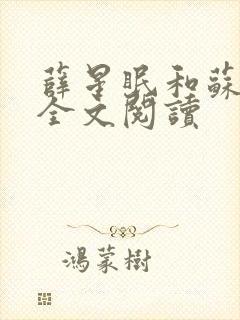 薛星眠和蘇
全文閱讀
鴻蒙樹